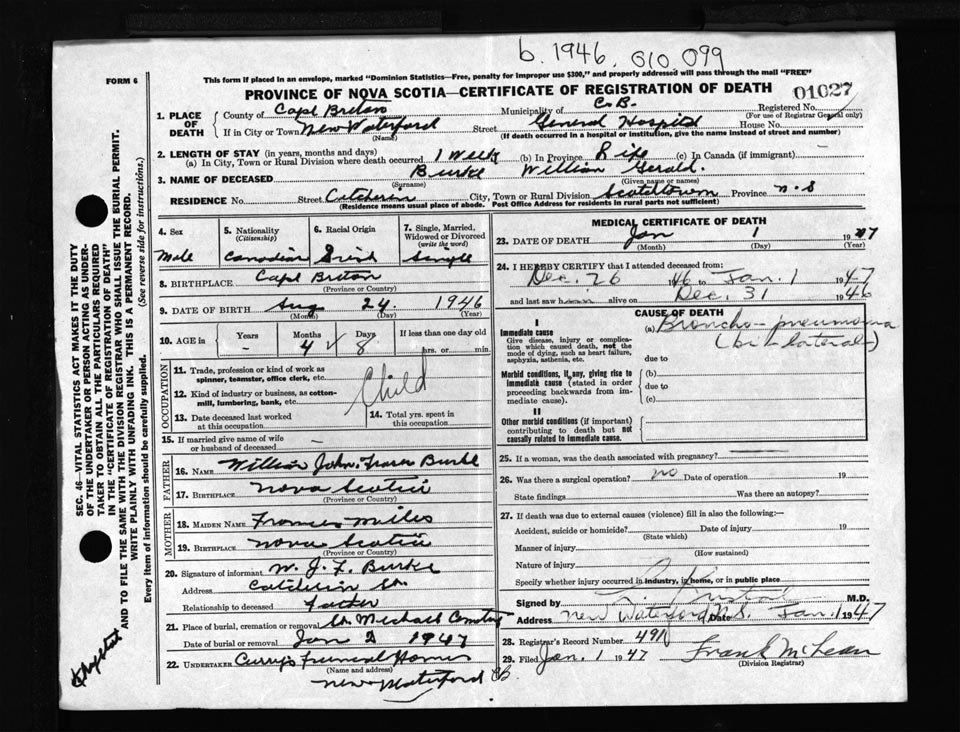 b. 1946. 010 099
FORM 6
This form if placed in an envelope, marked "Dominion Statistics—Free, penalty for improper use $300," and properly addressed will pass through the mail "FREE"
PROVINCE OF NOVA SCOTIA—CERTIFICATE OF REGISTRATION OF DEATH
01027
1. PLACE OF DEATH
County of Cape Breton Municipality of C.B. Registered No.
(For use of Registrar General only)
If in City or Town New Waterford Street General Hospital House No.
(Name) (If death occurred in a hospital or institution, give the name instead of street and number)
2. LENGTH OF STAY (in years, months and days)
(a) In City, Town or Rural Division where death occurred 1 Week (b) In Province Life (c) In Canada (if immigrant) —
3. NAME OF DECEASED Burke William Gerald.
(Surname) (Given name or names)
RESIDENCE No. Street City, Town or Rural Division Scotchtown Province N.S
(Residence means usual place of abode. Post Office Address for residents in rural parts not sufficient)
4. Sex
Male
5. Nationality (Citizenship)
Canadian
6. Racial Origin
Irish
7. Single, Married, Widowed or Divorced (write the word)
Single
8. BIRTHPLACE Cape Breton
(Province or Country)
9. DATE OF BIRTH Aug 24. 1946
(Month) (Day) (Year)
10. AGE in Years Months Days If less than one day old
- 4 8 hrs. or min.
OCCUPATION
11. Trade, profession or kind of work as spinner, teamster, office clerk, etc.
12. Kind of industry or business, as cotton-mill, lumbering, bank, etc.
Child
13. Date deceased last worked at this occupation
14. Total yrs. spent in this occupation
15. If married give name of wife or husband of deceased —
FATHER
16. NAME William John Fraser Burke
17. BIRTHPLACE Nova Scotia
(Province or Country)
MOTHER
18. MAIDEN NAME Frances Miles
19. BIRTHPLACE Nova Scotia
(Province or Country)
20. Signature of informant W. J. F. Burke
Address St.
Relationship to deceased Father
21. Place of burial, cremation or removal St. Michaels Cemetery
Date of burial or removal Jan 2 1947
22. UNDERTAKER Curry's Funeral Home
(Name and address)
New Waterford CB.
MEDICAL CERTIFICATE OF DEATH
23. DATE OF DEATH Jan 1 1947
(Month) (Day) (Year)
24. I HEREBY CERTIFY that I attended deceased from:
Dec. 26 1946 to Jan. 1 1947
and last saw h alive on Dec. 31 1946
CAUSE OF DEATH
I
Immediate cause
Give disease, injury or complication which caused death, not the mode of dying, such as heart failure, asphyxia, asthenia, etc.
(a) Broncho-pneumonia
(bi-lateral)
due to
Morbid conditions, if any, giving rise to immediate cause (stated in order proceeding backwards from immediate cause).
(b)
due to
(c)
II
Other morbid conditions (if important) contributing to death but not causally related to immediate cause.
25. If a woman, was the death associated with pregnancy? —
26. Was there a surgical operation? no Date of operation 19
State findings Was there an autopsy?
27. If death was due to external causes (violence) fill in also the following:—
Accident, suicide or homicide? Date of injury 19
(State which)
Manner of injury
(How sustained)
Nature of injury
Specify whether injury occurred in industry, in home, or in public place
Signed by M.D.
Address New Waterford, N.S. Date Jan. 1 1947
28. Registrar's Record Number 491
29. Filed Jan. 1 1947 Frank McLean
(Division Registrar)
SEC. 46—VITAL STATISTICS ACT MAKES IT THE DUTY OF THE UNDERTAKER OR PERSON ACTING AS UNDERTAKER TO OBTAIN ALL THE PARTICULARS REQUIRED IN THE "CERTIFICATE OF REGISTRATION OF DEATH" AND TO FILE THE SAME WITH THE DIVISION REGISTRAR WHO SHALL ISSUE THE BURIAL PERMIT.
WRITE PLAINLY WITH UNFADING INK. THIS IS A PERMANENT RECORD.
Every item of information should be carefully supplied. (See reverse side for instructions.)